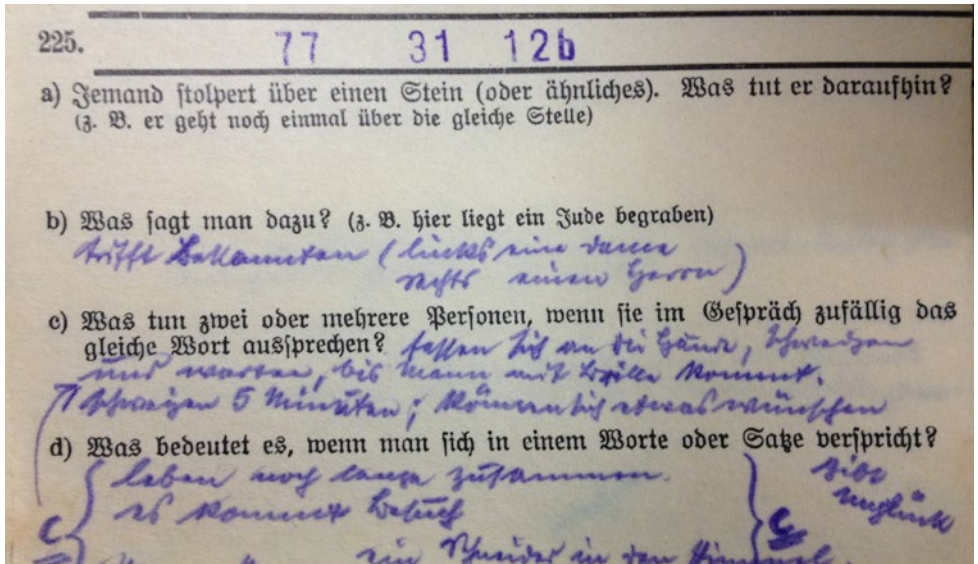 225. 77 31 12b
a) Jemand stolpert über einen Stein (oder ähnliches). Was tut er daraufhin?
(z. B. er geht noch einmal über die gleiche Stelle)
b) Was sagt man dazu? (z. B. hier liegt ein Jude begraben)
trifft Bekannten (links eine Dame
rechts einen Herrn)
c) Was tun zwei oder mehrere Personen, wenn sie im Gespräch zufällig das
gleiche Wort aussprechen? fassen sich an die Hände, schweigen
und warten, bis Mann mit Brille kommt.
schweigen 5 Minuten; können sich etwas wünschen
d) Was bedeutet es, wenn man sich in einem Worte oder Satze verspricht?
leben noch lange zusammen. Unglück
es kommt Besuch
c c
ein Schneider in den Himmel.